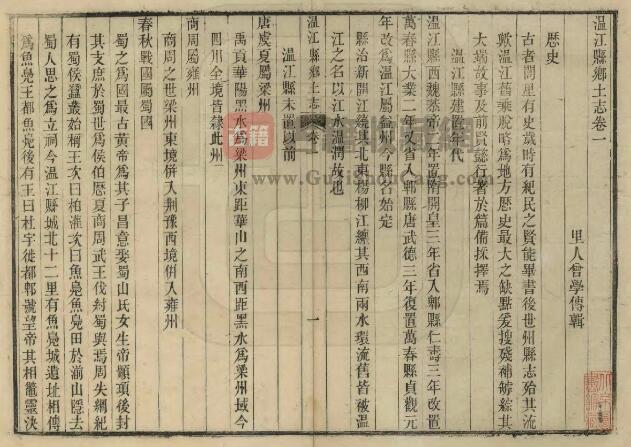 温江縣鄉土志卷一
里人曾學傳輯
歷史
古者閭里有史歲時有紀民之賢能畢書後世州縣志殆其流
歟温江舊乘脫略為地方歷史最大之缺點爰搜殘補綜其
大端故事及前賢懿行著於篇備採擇焉
温江縣建置年代
温江縣西魏恭帝年置隋開皇三年省入郫縣仁壽三年改置
萬春縣大業二年又省入郫縣唐武德三年復置萬春縣貞觀元
年改為温江屬益州今縣名始定
縣治新開江繞其北東楊柳江纏其西南兩水環流舊皆被温
江之名以江水温潤故也
温江縣鄉土志 卷一
一
温江縣未置以前
唐虞夏屬梁州
禹貢華陽黑水為梁州東距華山之南西距黑水為梁州域今
四川全境皆隸此州
商周屬雍州
商周之世梁州東境併入荆豫西境併入雍州
春秋戰國屬蜀國
蜀之為國最古黃帝為其子昌意娶蜀山氏女生帝顓頊後封
其支庶於蜀世為侯伯歷夏商周武王伐紂蜀與焉周失綱紀
有蜀侯蠶叢始稱王次曰柏灌次曰魚鳧魚鳧田於湔山隱去
蜀人思之為立祠今温江縣城北十二里有魚鳧城遺址相傳
為魚鳧王都魚鳧後有王曰杜宇徙都郫號望帝其相鼈靈決
www.GuJiShuCang.com